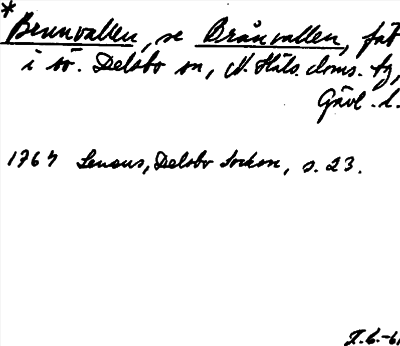 * Brunvallen, se Brånvallen, fäb
i sö. Delsbo sn, N. Häls. doms. tg,
Gävl. l.
1764 Lenæus, Delsbo Sockon, s. 23.